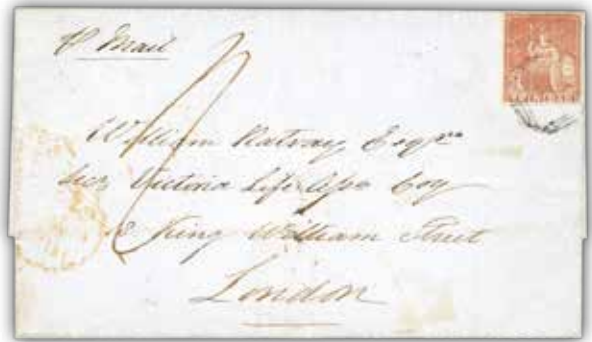 ℔ Mail
TRINIDAD
William Ratray Esqre
Secy Victoria Life Assce Coy
18 King William Street
London